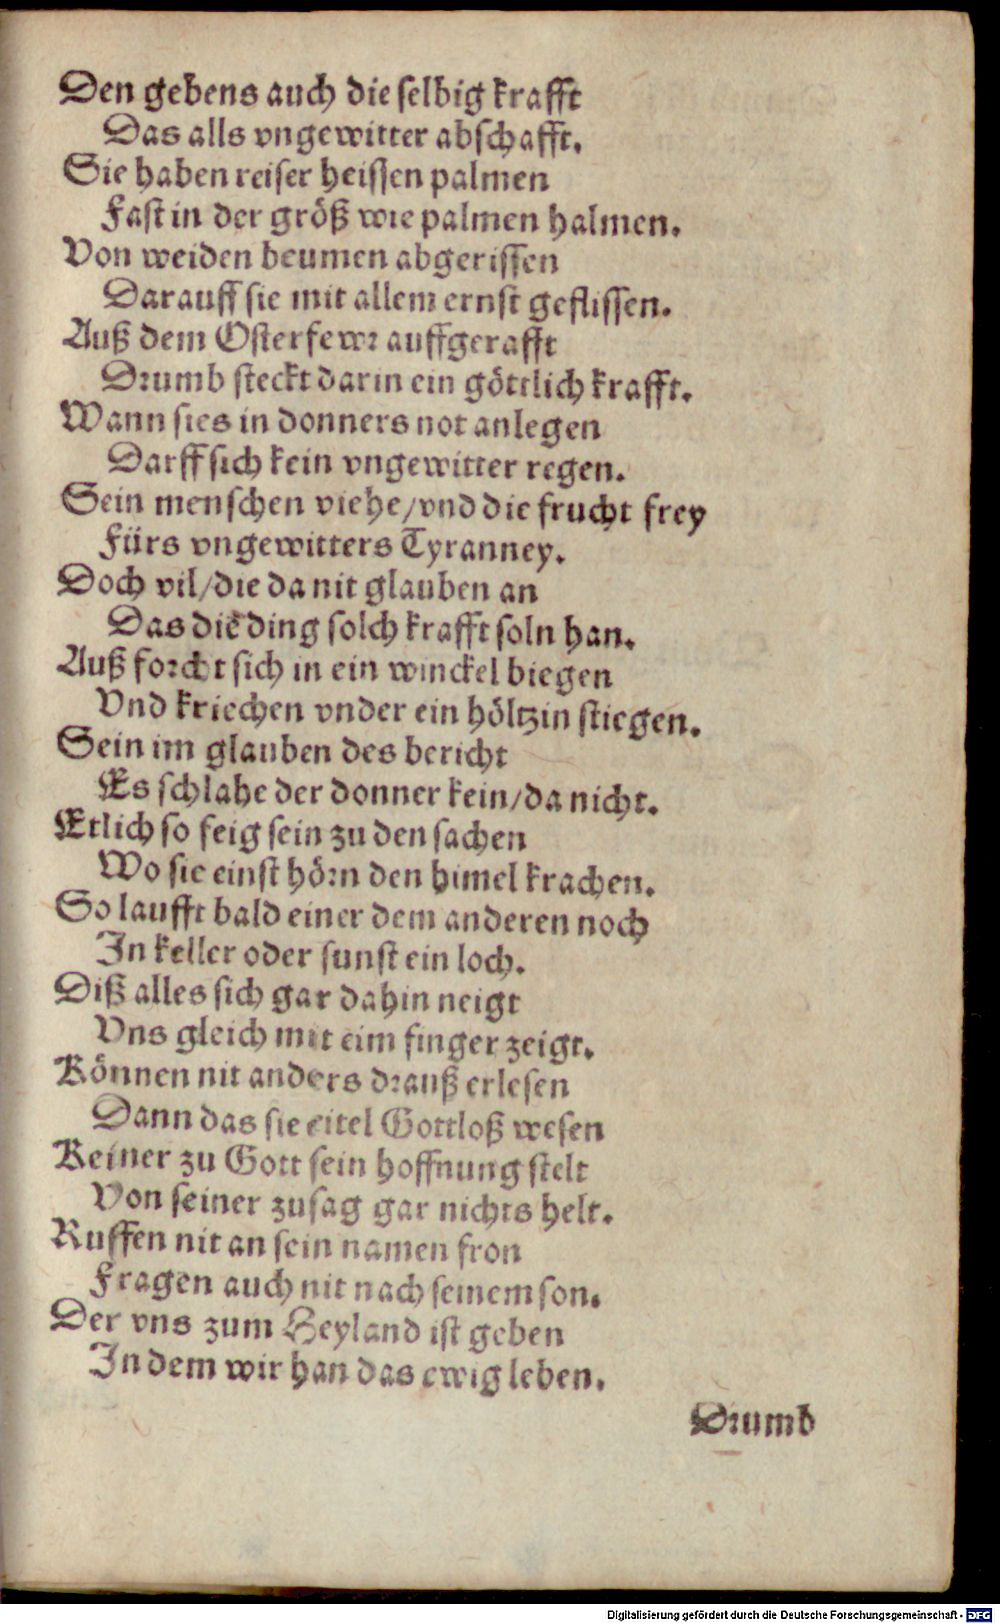 Den gebens auch die selbig krafft
Das alls vngewitter abschafft.
Sie haben reiser heissen palmen
Fast in der größ wie palmen halmen.
Von weiden beumen abgerissen
Darauff sie mit allem ernst geflissen.
Auß dem Osterfewr auffgerafft
Drumb steckt darin ein göttlich krafft.
Wann sies in donners not anlegen
Darff sich kein vngewitter regen.
Sein menschen viehe/vnd die frucht frey
Fürs vngewitters Tyranney.
Doch vil/die da nit glauben an
Das die ding solch krafft soln han.
Auß forcht sich in ein winckel biegen
Vnd kriechen vnder ein höltzin stiegen.
Sein im glauben des bericht
Es schlahe der donner kein/da nicht.
Etlich so feig sein zu den sachen
Wo sie einst hörn den himel krachen.
So laufft bald einer dem anderen noch
In keller oder sunst ein loch.
Diß alles sich gar dahin neigt
Vns gleich mit eim finger zeigt.
Können nit anders drauß erlesen
Dann das sie eitel Gottloß wesen
Keiner zu Gott sein hoffnung stelt
Von seiner zusag gar nichts helt.
Ruffen nit an sein namen fron
Fragen auch nit nach seinem son.
Der vns zum Heyland ist geben
In dem wir han das ewig leben.
Drumb
Digitalisierung gefördert durch die Deutsche Forschungsgemeinschaft - DFG